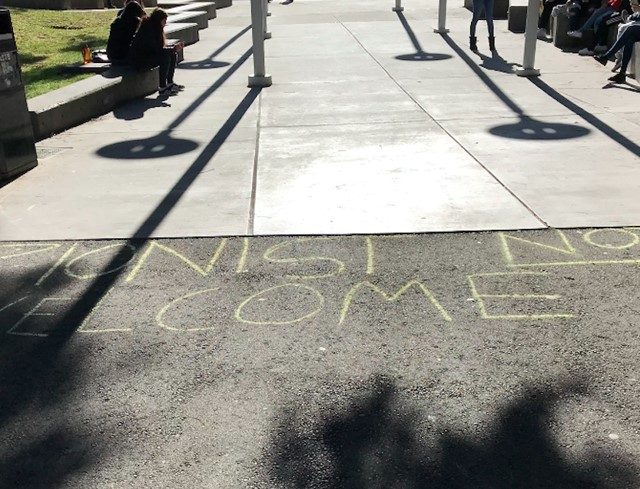 ZIONIST NO
WELCOME